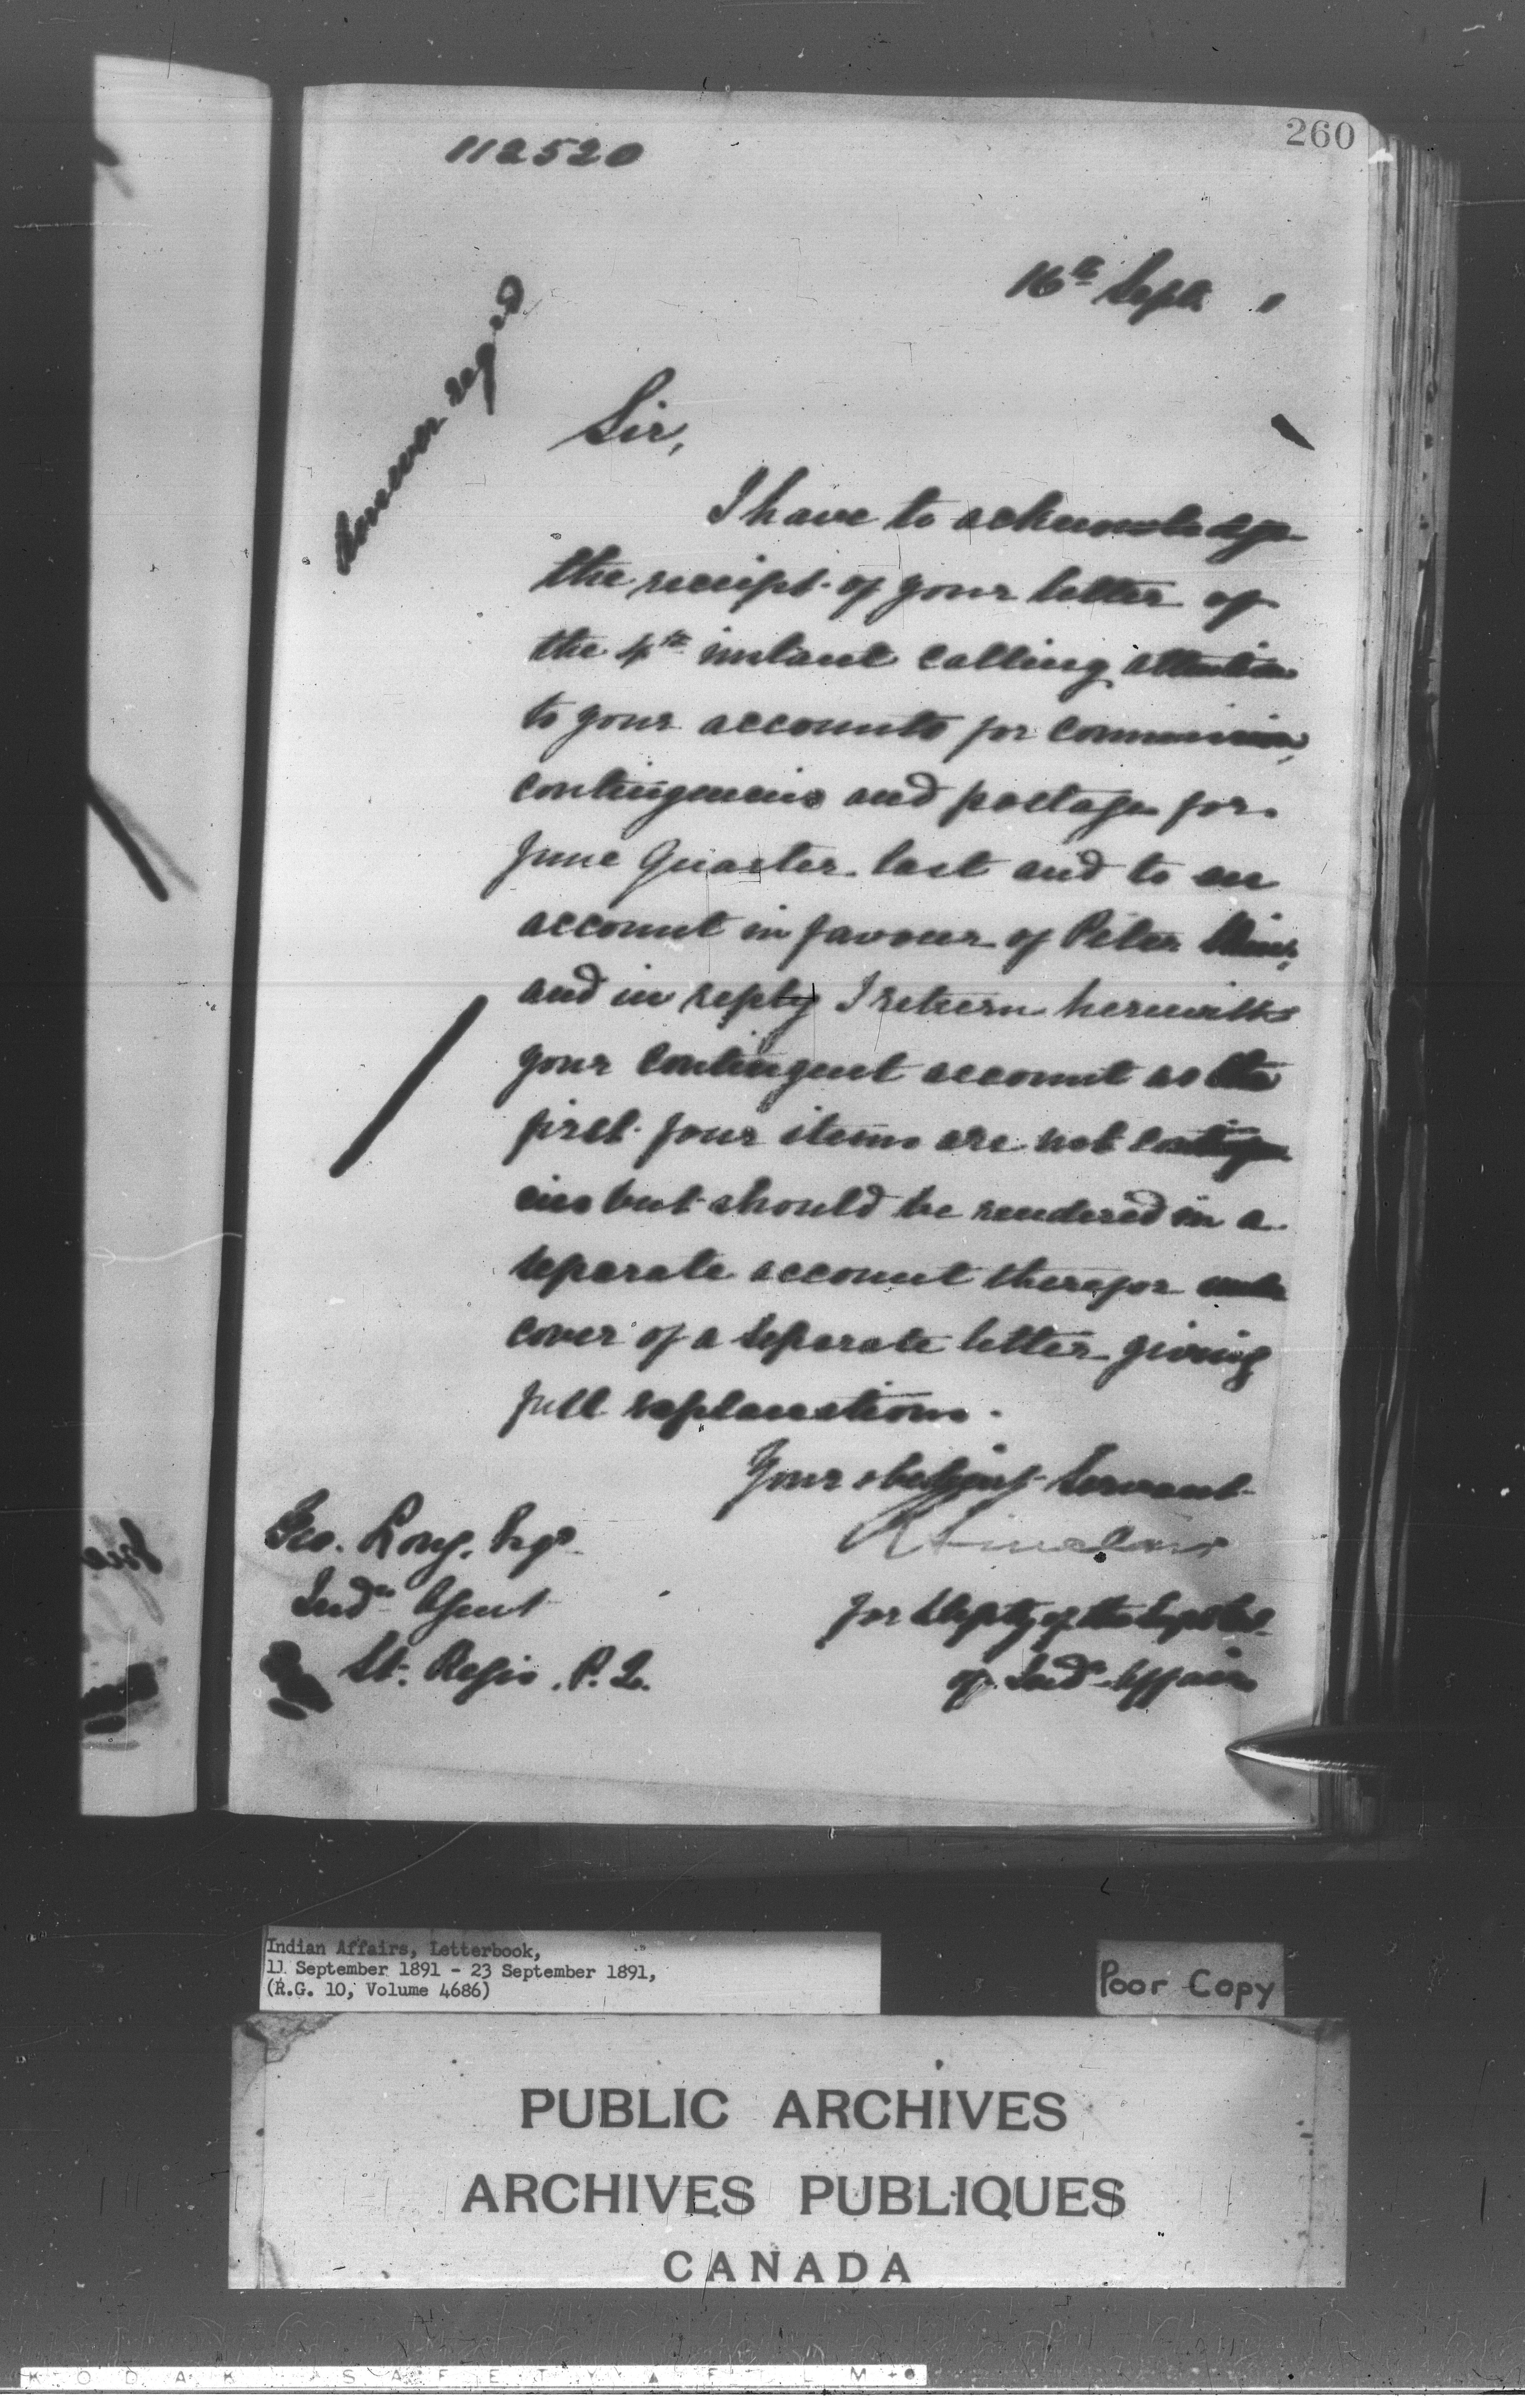 260
112520
16th Sept. 1
Answer reqd
Sir,
I have to acknowledge
the receipt of your letter of
the 4th instant calling attention
to your accounts for commission,
contingencies and postage for
June Quarter last and to an
account in favour of Peter
and in reply I return herewith
your contingent account as the
first four items are not contingen
cies but should be rendered in a
separate account therefor under
cover of a separate letter giving
full explanations.
Your obedient Servant
R Sinclair
for Deputy of the Supt Genl
of Indn Affairs
Geo. Long, Esqr
Indn Agent
St. Regis, P.Q.
Indian Affairs, Letterbook,
11 September 1891 - 23 September 1891,
(R.G. 10, Volume 4686)
Poor Copy
PUBLIC ARCHIVES
ARCHIVES PUBLIQUES
CANADA
KODAK SAFETY FILM